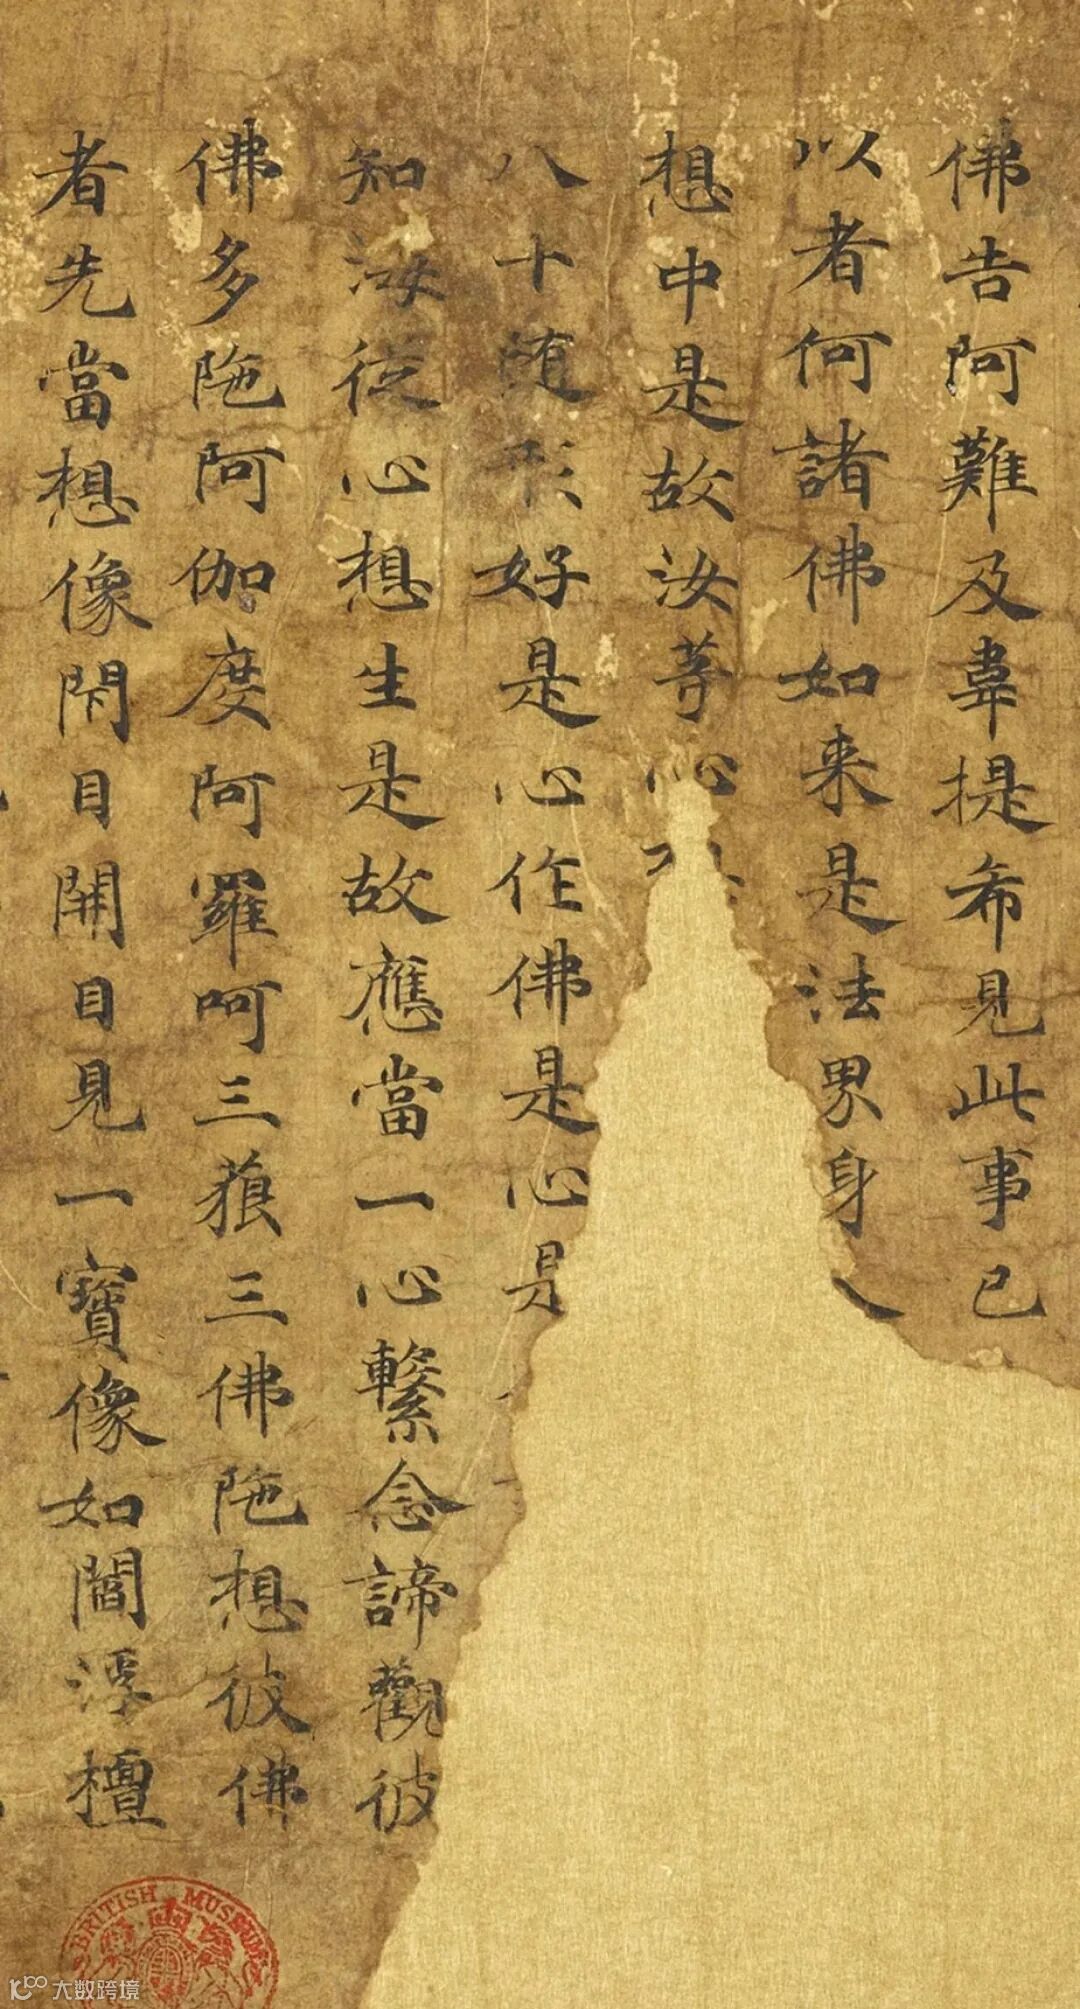 佛告阿難及韋提希見此事已
以者何諸佛如来是法界身
想中是故汝等心
八十随形好是心作佛是心是
知海従心想生是故應當一心繫念諦觀彼
佛多陁阿伽度阿羅呵三藐三佛陁想彼佛
者先當想像閇目開目見一寶像如閻浮檀
BRITISH MUSEUM
大数跨境